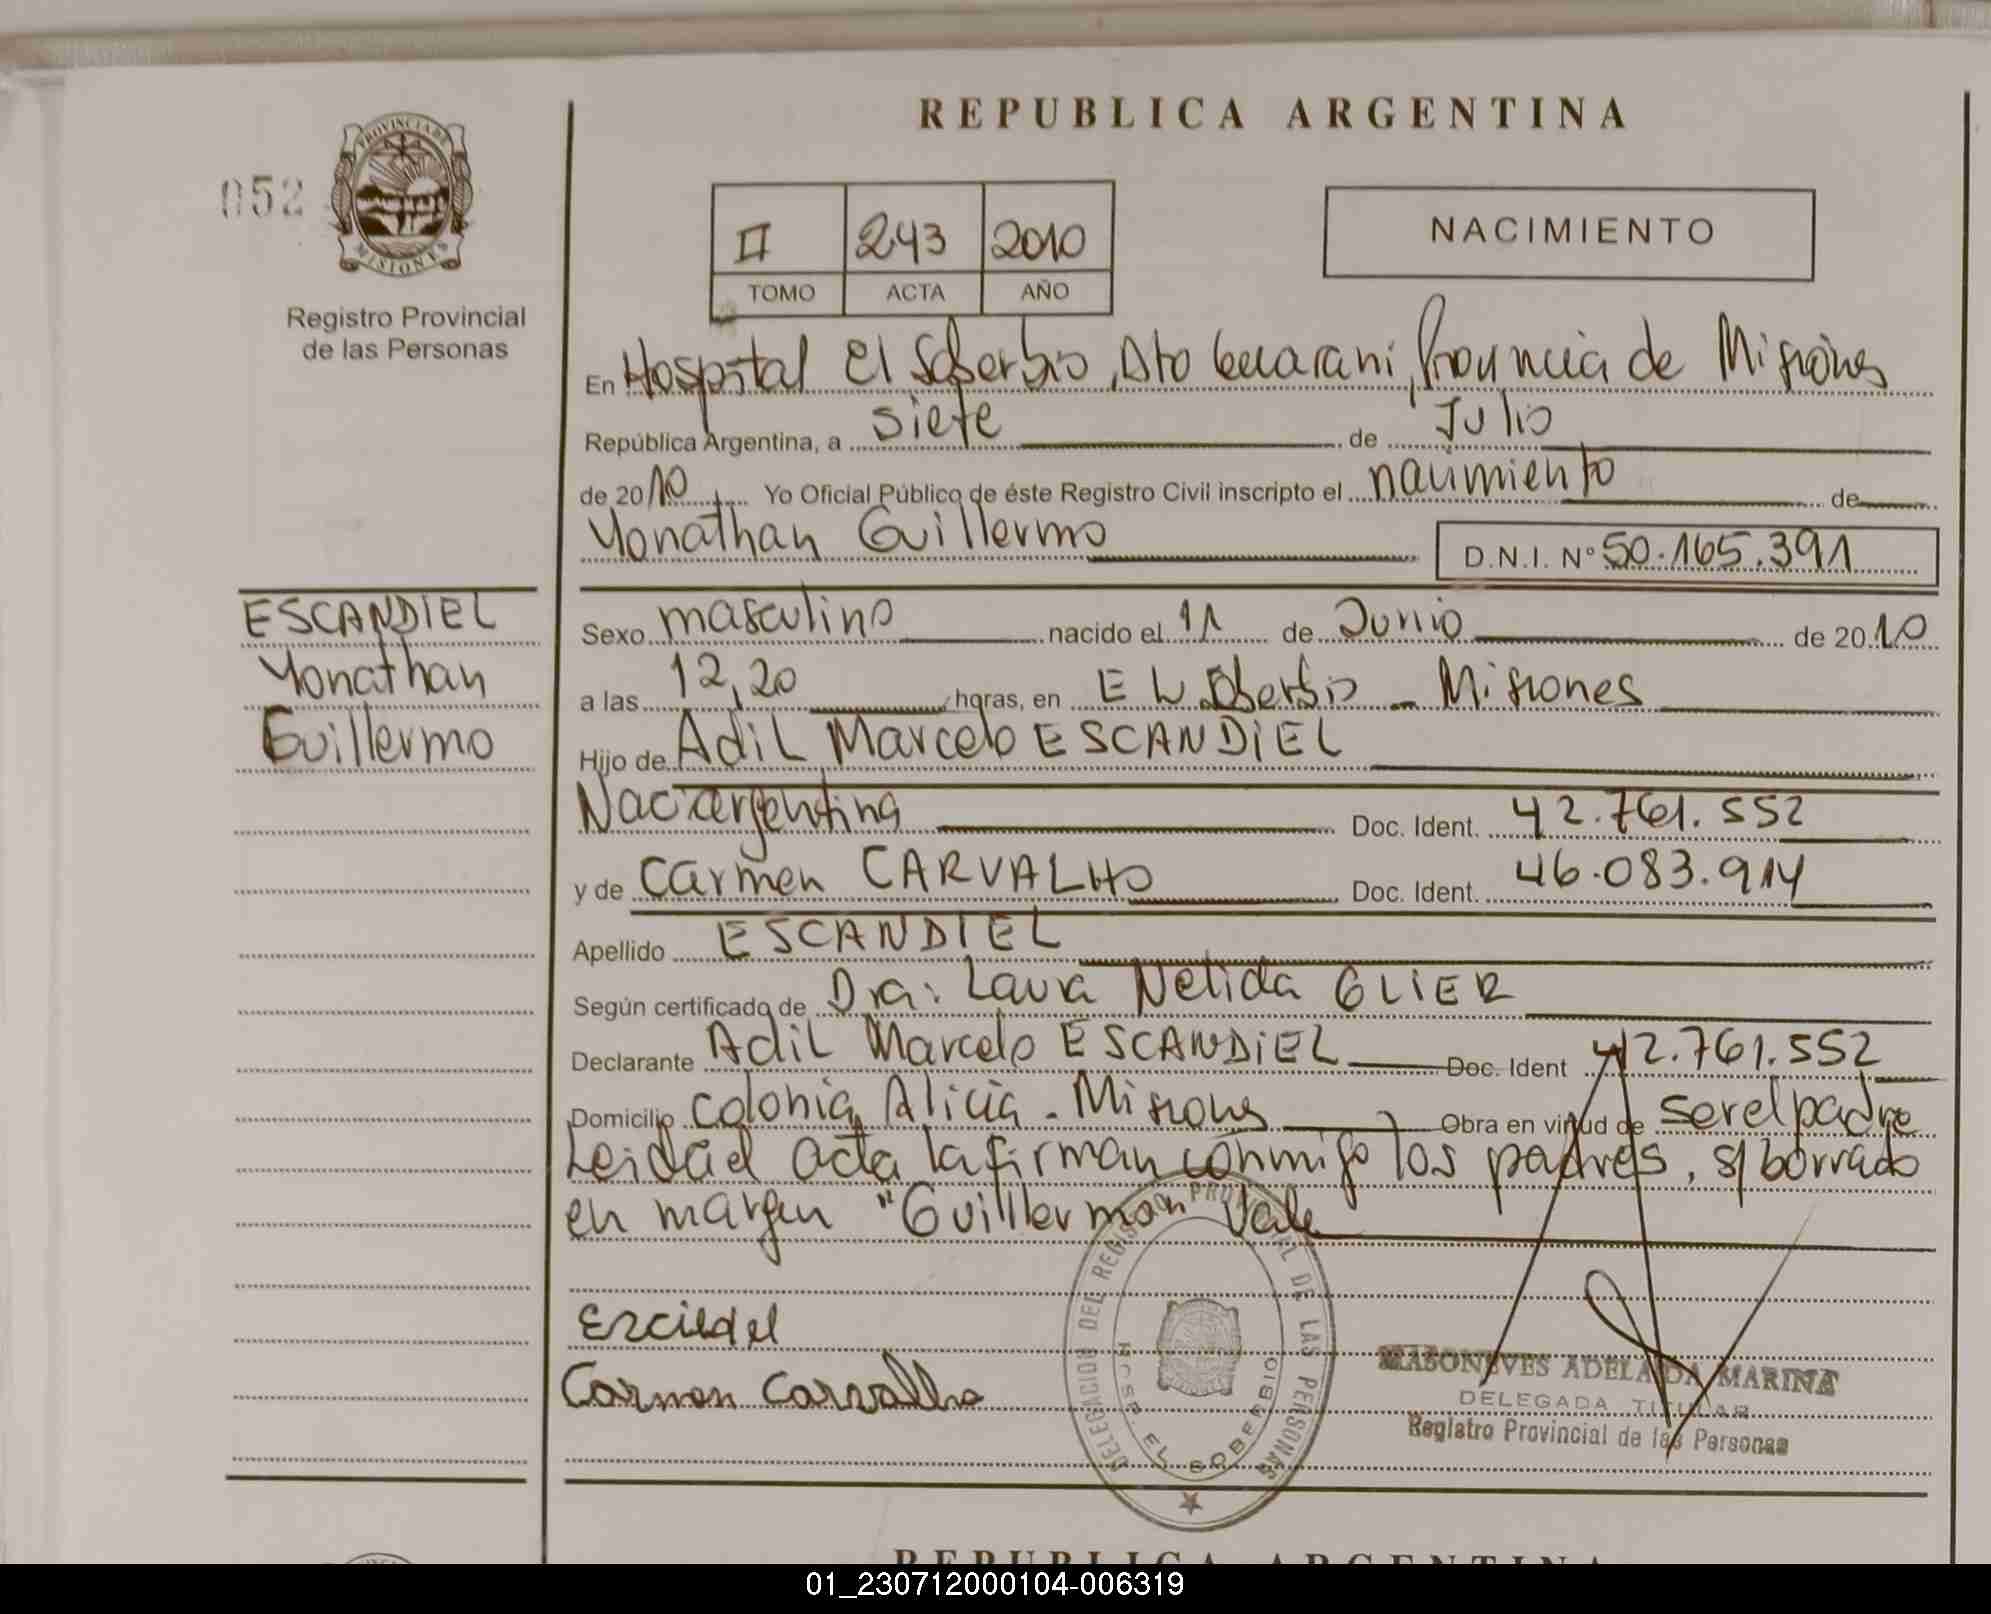 REPUBLICA ARGENTINA
052
PROVINCIA DE
MISIONES
Registro Provincial
de las Personas
II 243 2010
TOMO ACTA AÑO
NACIMIENTO
En Hospital El Soberbio, Dto Guarani, Provincia de Misiones
República Argentina, a siete de Julio
de 2010 Yo Oficial Público de éste Registro Civil inscripto el nacimiento de
Yonathan Guillermo D.N.I. Nº 50.165.391
ESCANDIEL
Yonathan
Guillermo
Sexo masculino nacido el 11 de Junio de 2010
a las 12,20 horas, en El Soberbio - Misiones
Hijo de Adil Marcelo ESCANDIEL
Nac: argentina Doc. Ident. 42.761.552
y de Carmen CARVALHO Doc. Ident. 46.083.914
Apellido ESCANDIEL
Según certificado de Dra: Laura Nelida GLIER
Declarante Adil Marcelo ESCANDIEL Doc. Ident 42.761.552
Domicilio Colonia Alicia - Misiones Obra en virtud de ser el padre
Leida el acta la firman conmigo los padres, s/borrado
en margen "Guillermo" Vale
Carmen Carvalho
DELEGACION DEL REGISTRO PROVINCIAL DE LAS PERSONAS
HOSP. EL SOBERBIO
MASONEVES ADELAIDA MARINA
DELEGADA TITULAR
Registro Provincial de las Personas
REPUBLICA ARGENTINA
01_230712000104-006319